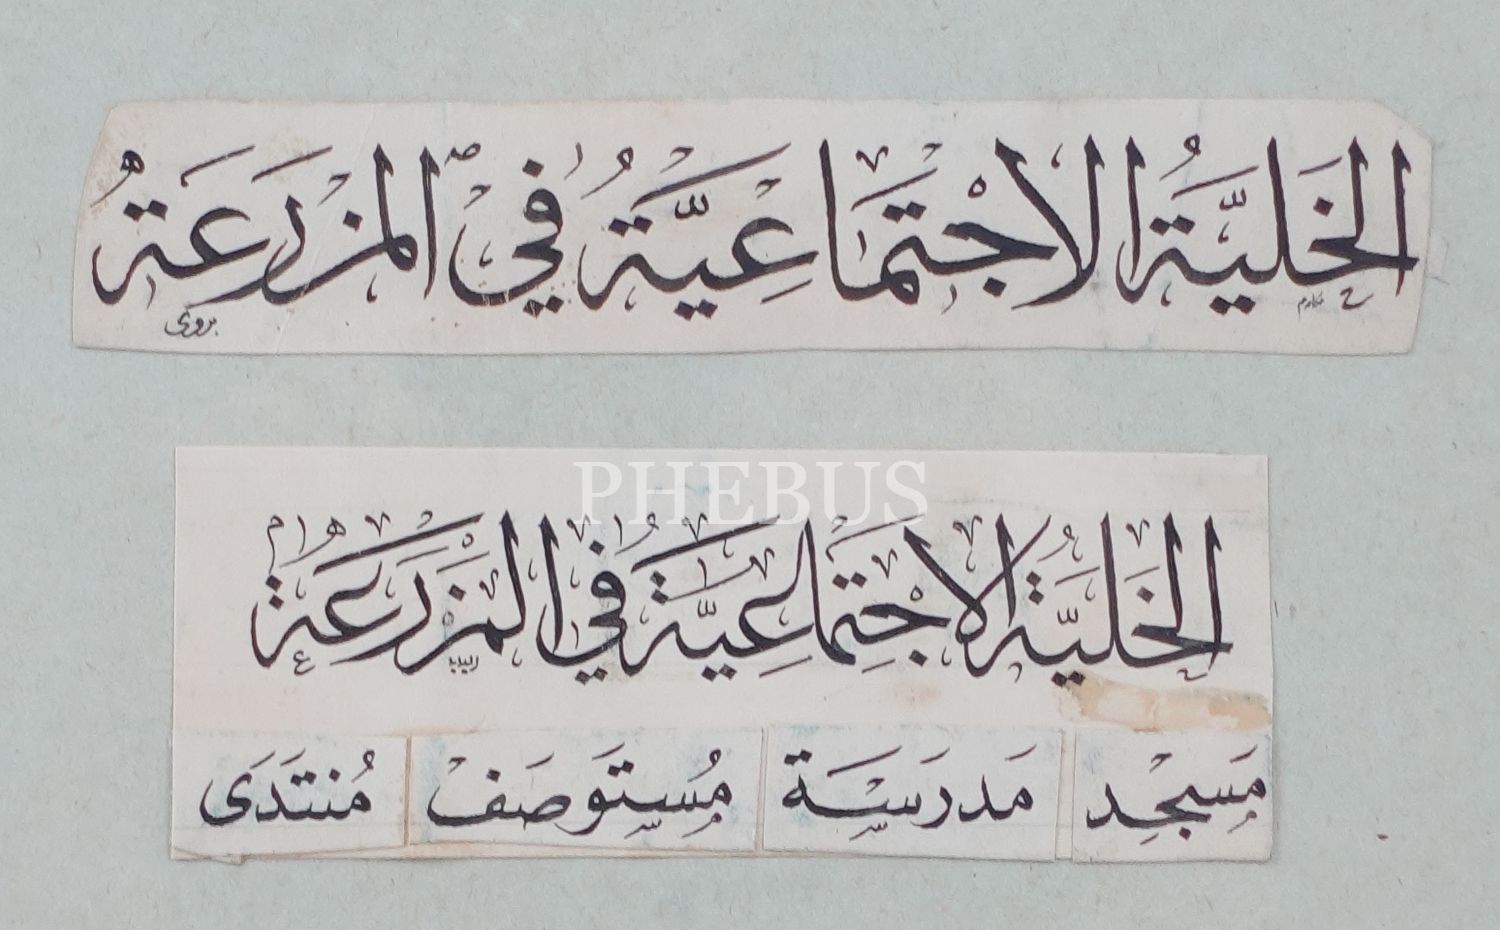 الخَليَّةُ الاجْتمَاعِيَّةُ فِي المزرَعَةُ
PHEBUS
الخَليَّةُ الاجْتِمَاعِيَّةُ فِي المَزْرَعَةُ
مَسْجِد مَدرَسَة مُسْتَوصَفْ مُنتَدَى